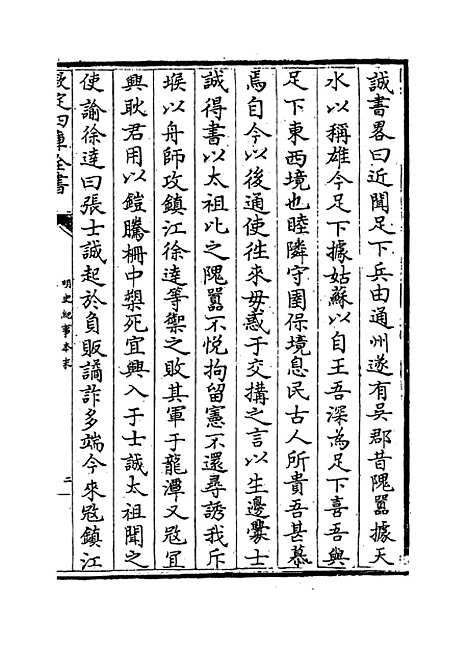 誠書畧曰近聞足下兵由通州遂有吳郡昔隗囂據天
水以稱雄今足下據姑蘇以自王吾深為足下喜吾與
足下東西境也睦隣守圉保境息民古人所貴吾甚慕
焉自今以後通使往來毋惑于交搆之言以生邊釁士
誠得書以太祖比之隗囂不悅拘留憲不還尋誘我斥
堠以舟師攻鎮江徐達等禦之敗其軍于龍潭又冦宜
興耿君用以鎧騰柵中槊死宜興入于士誠太祖聞之
使諭徐達曰張士誠起於負販譎詐多端今來冦鎮江
欽定四庫全書
明史紀事本末
二